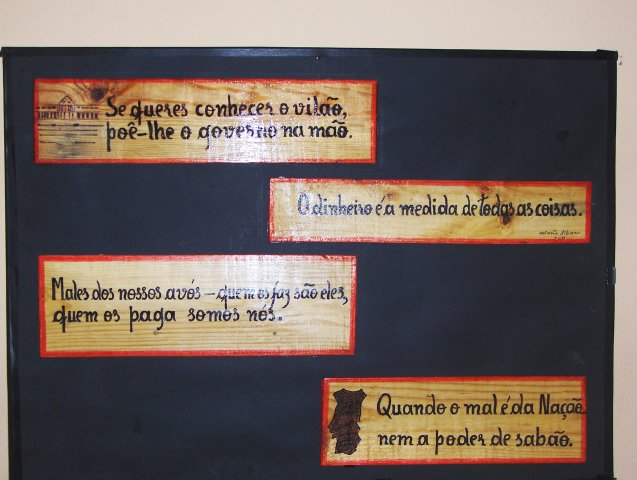 Se queres conhecer o vilão,
põe-lhe o governo na mão.
O dinheiro é a medida de todas as coisas.
Males dos nossos avós - quem os faz são eles,
quem os paga somos nós.
Quando o mal é da Nação
nem a poder de sabão.